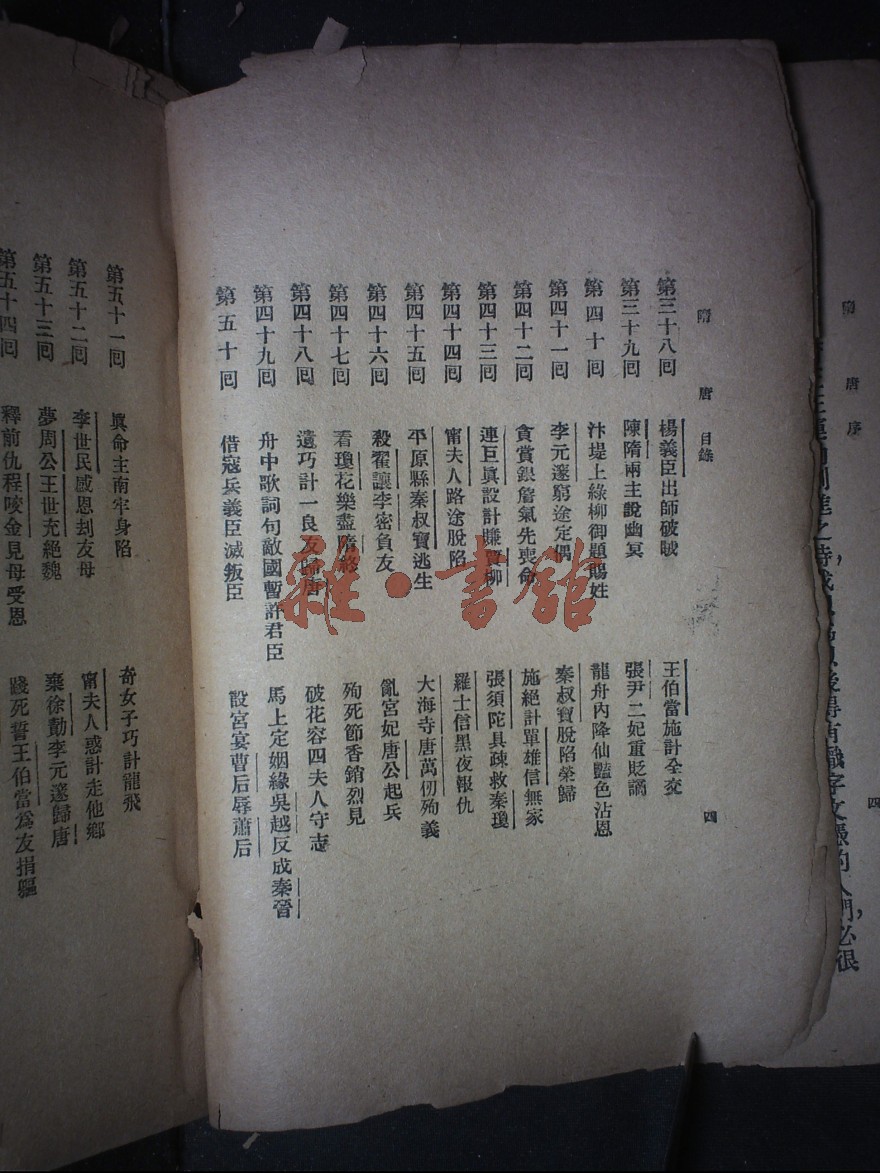 隋 唐 序
四
隋 唐 目錄
四
第三十八囘 楊義臣出師破賊 王伯當施計全交
第三十九囘 陳隋兩主說幽冥 張尹二妃重貶謫
第四十囘 汴堤上綠柳御題賜姓 龍舟內降仙豔色沾恩
第四十一囘 李元邃窮途定偶 秦叔寶脫陷榮歸
第四十二囘 貪賞銀詹氣先喪命 施絕計單雄信無家
第四十三囘 連巨眞設計賺賈柳 張須陀具疎救秦瓊
第四十四囘 甯夫人路途脫陷 羅士信黑夜報仇
第四十五囘 平原縣秦叔寶逃生 大海寺唐萬仞殉義
第四十六囘 殺翟讓李密負友 亂宮妃唐公起兵
第四十七囘 看瓊花樂盡隋終 殉死節香銷烈見
第四十八囘 遺巧計一良友歸唐 破花容四夫人守志
第四十九囘 舟中歌詞句敵國暫許君臣 馬上定姻緣吳越反成秦晉
第五十囘 借寇兵義臣滅叛臣 設宮宴曹后辱蕭后
第五十一囘 眞命主南牢身陷 奇女子巧計龍飛
第五十二囘 李世民感恩刦友母 甯夫人惑計走他鄉
第五十三囘 夢周公王世充絕魏 棄徐勣李元邃歸唐
第五十四囘 釋前仇程咬金見母受恩 踐死誓王伯當爲友捐軀
雜·書館